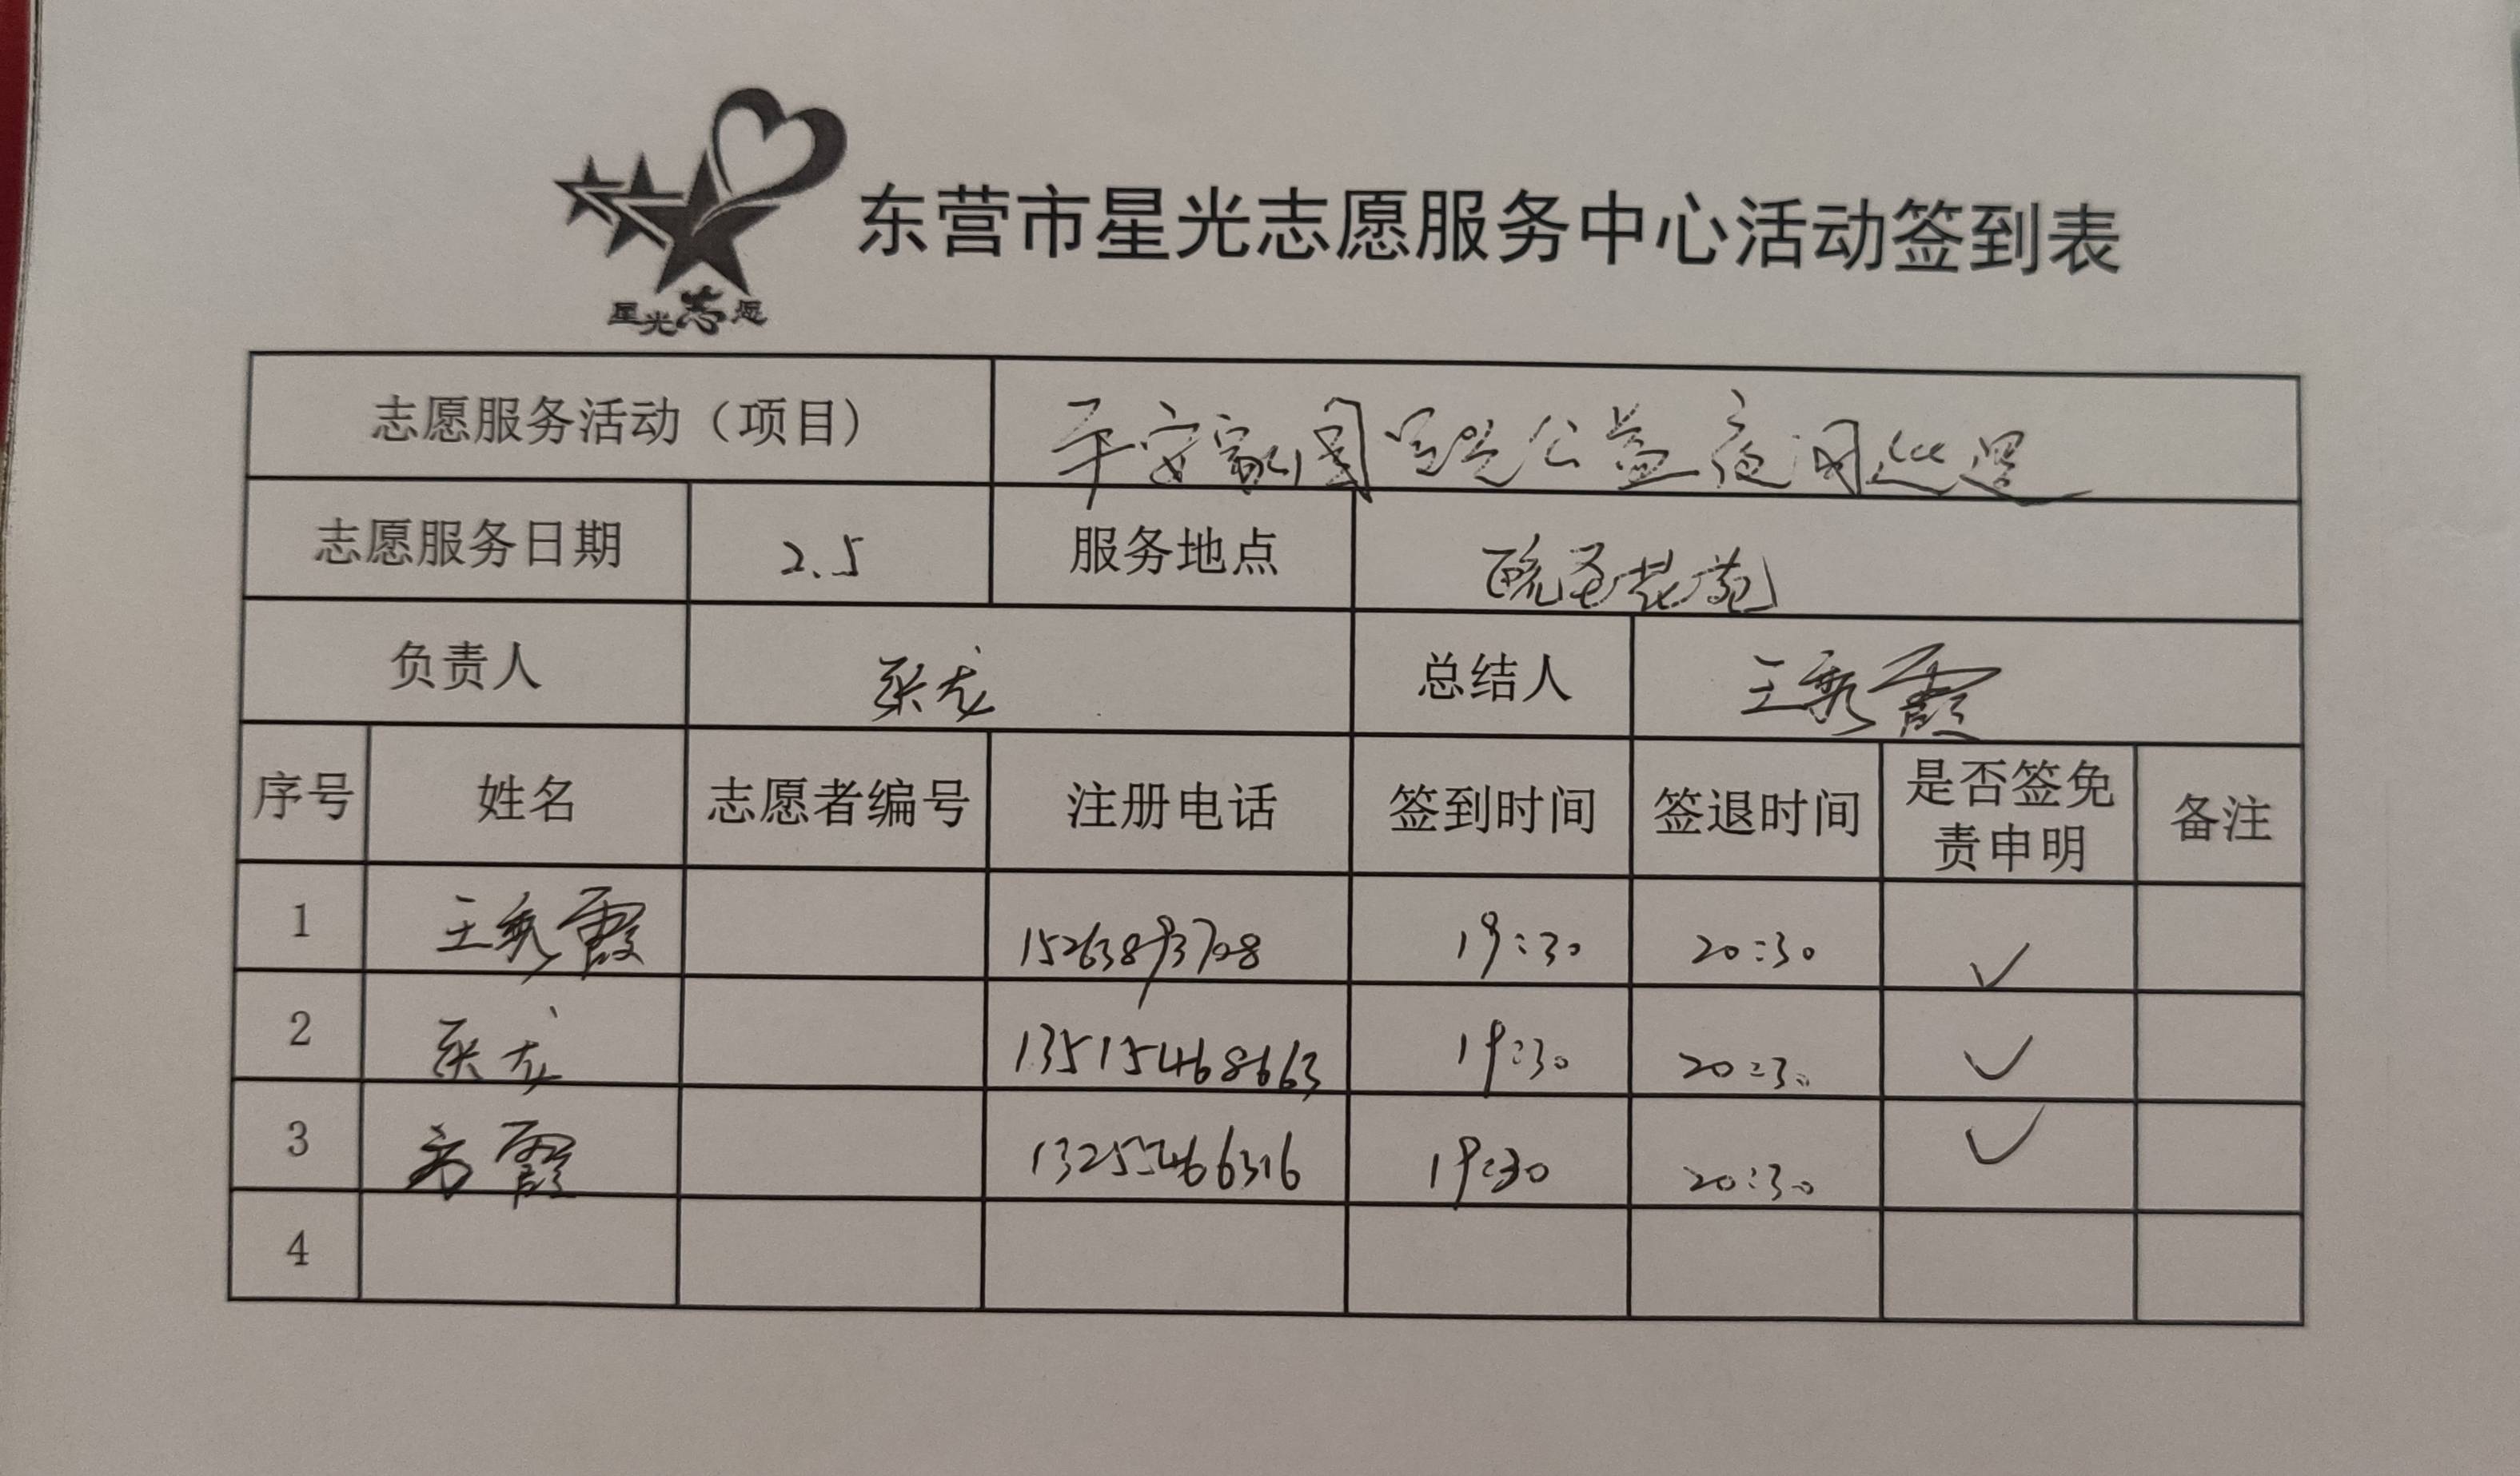 东营市星光志愿服务中心活动签到表
星光志愿
志愿服务活动（项目） 平安家园星光公益夜间巡逻
志愿服务日期 2.5 服务地点 花苑
负责人 张龙 总结人 王秀霞
序号 姓名 志愿者编号 注册电话 签到时间 签退时间 是否签免责申明 备注
1 王秀霞 15263893708 19:30 20:30 ✓
2 张龙 13515468663 19:30 20:30 ✓
3 霞 13255466316 19:30 20:30 ✓
4